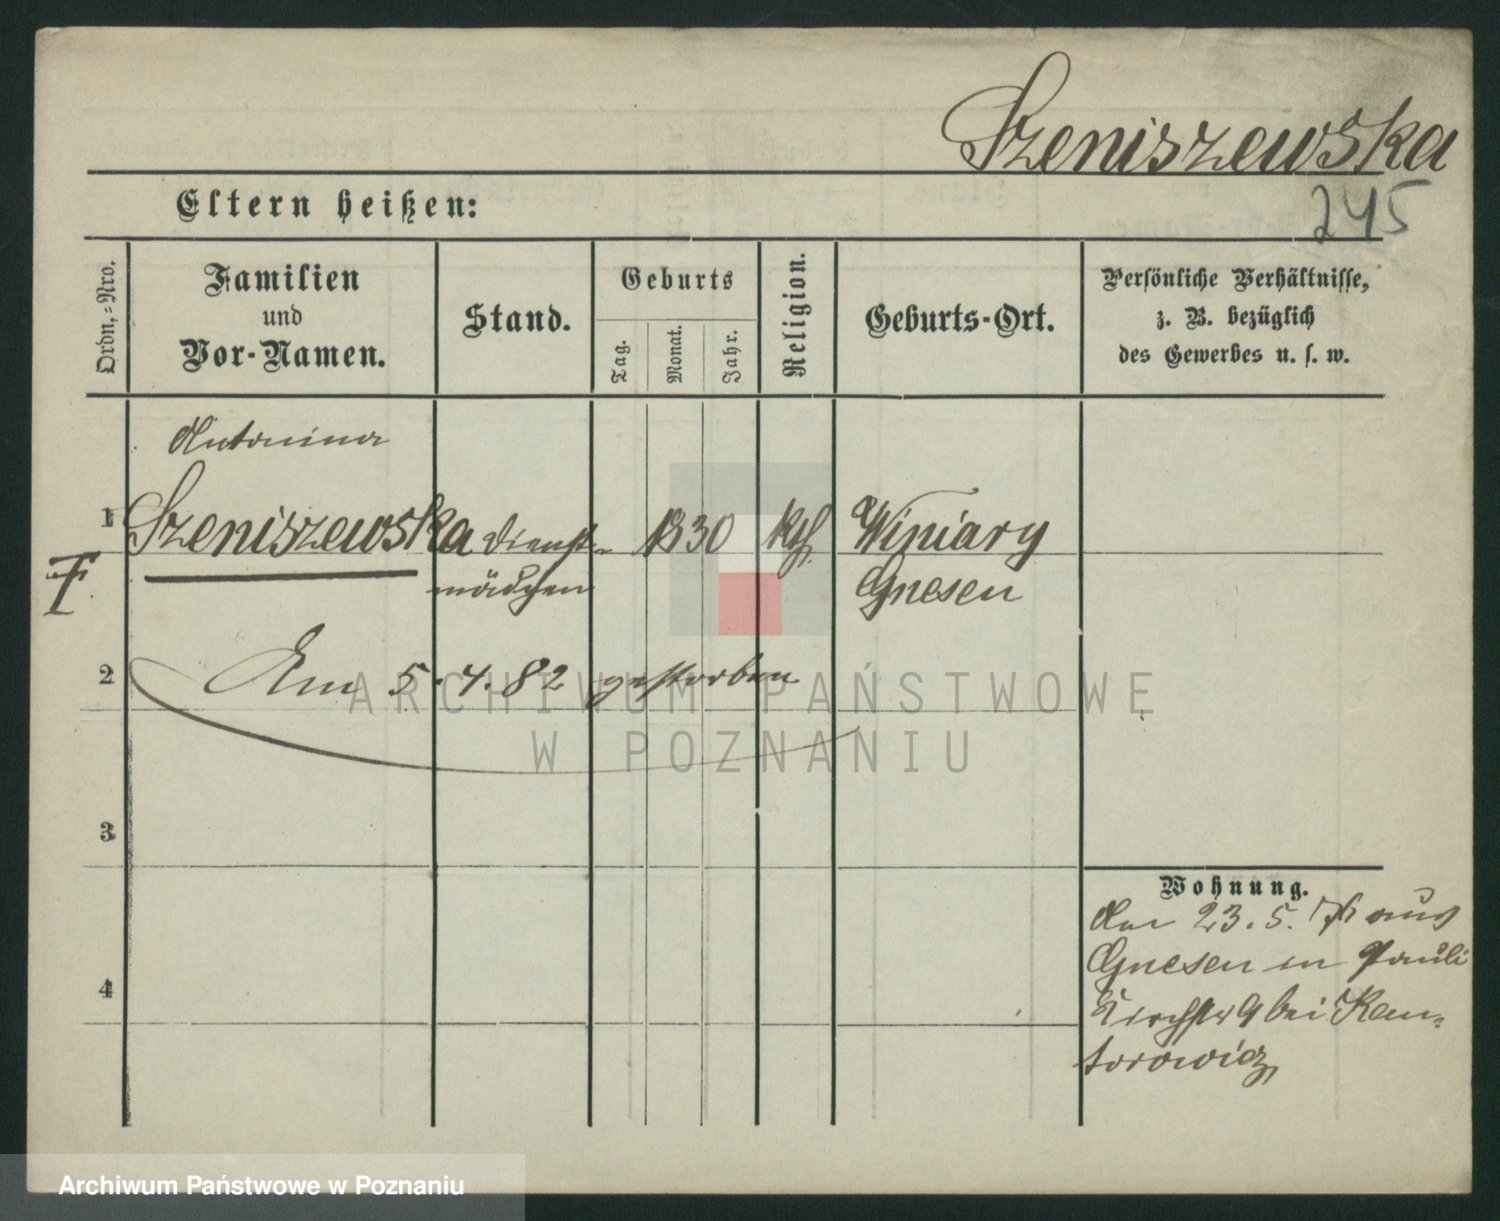 Szeniszewska
245
Eltern heißen:
Ordn.-Nro.
Familien
und
Vor-Namen.
Stand.
Geburts
Tag.
Monat.
Jahr.
Religion.
Geburts-Ort.
Persönliche Verhältnisse,
z. B. bezüglich
des Gewerbes u. s. w.
Antonina
1 Szeniszewska Dienst- 1830 kth. Winiary
mädchen Gnesen
2 Am 5.4.82 gestorben
3
Wohnung.
23.5. 76 aus
Gnesen in Pauli
4
Kirchstr 9 bei Kan-
torowicz
ARCHIWUM PAŃSTWOWE
W POZNANIU
Archiwum Państwowe w Poznaniu